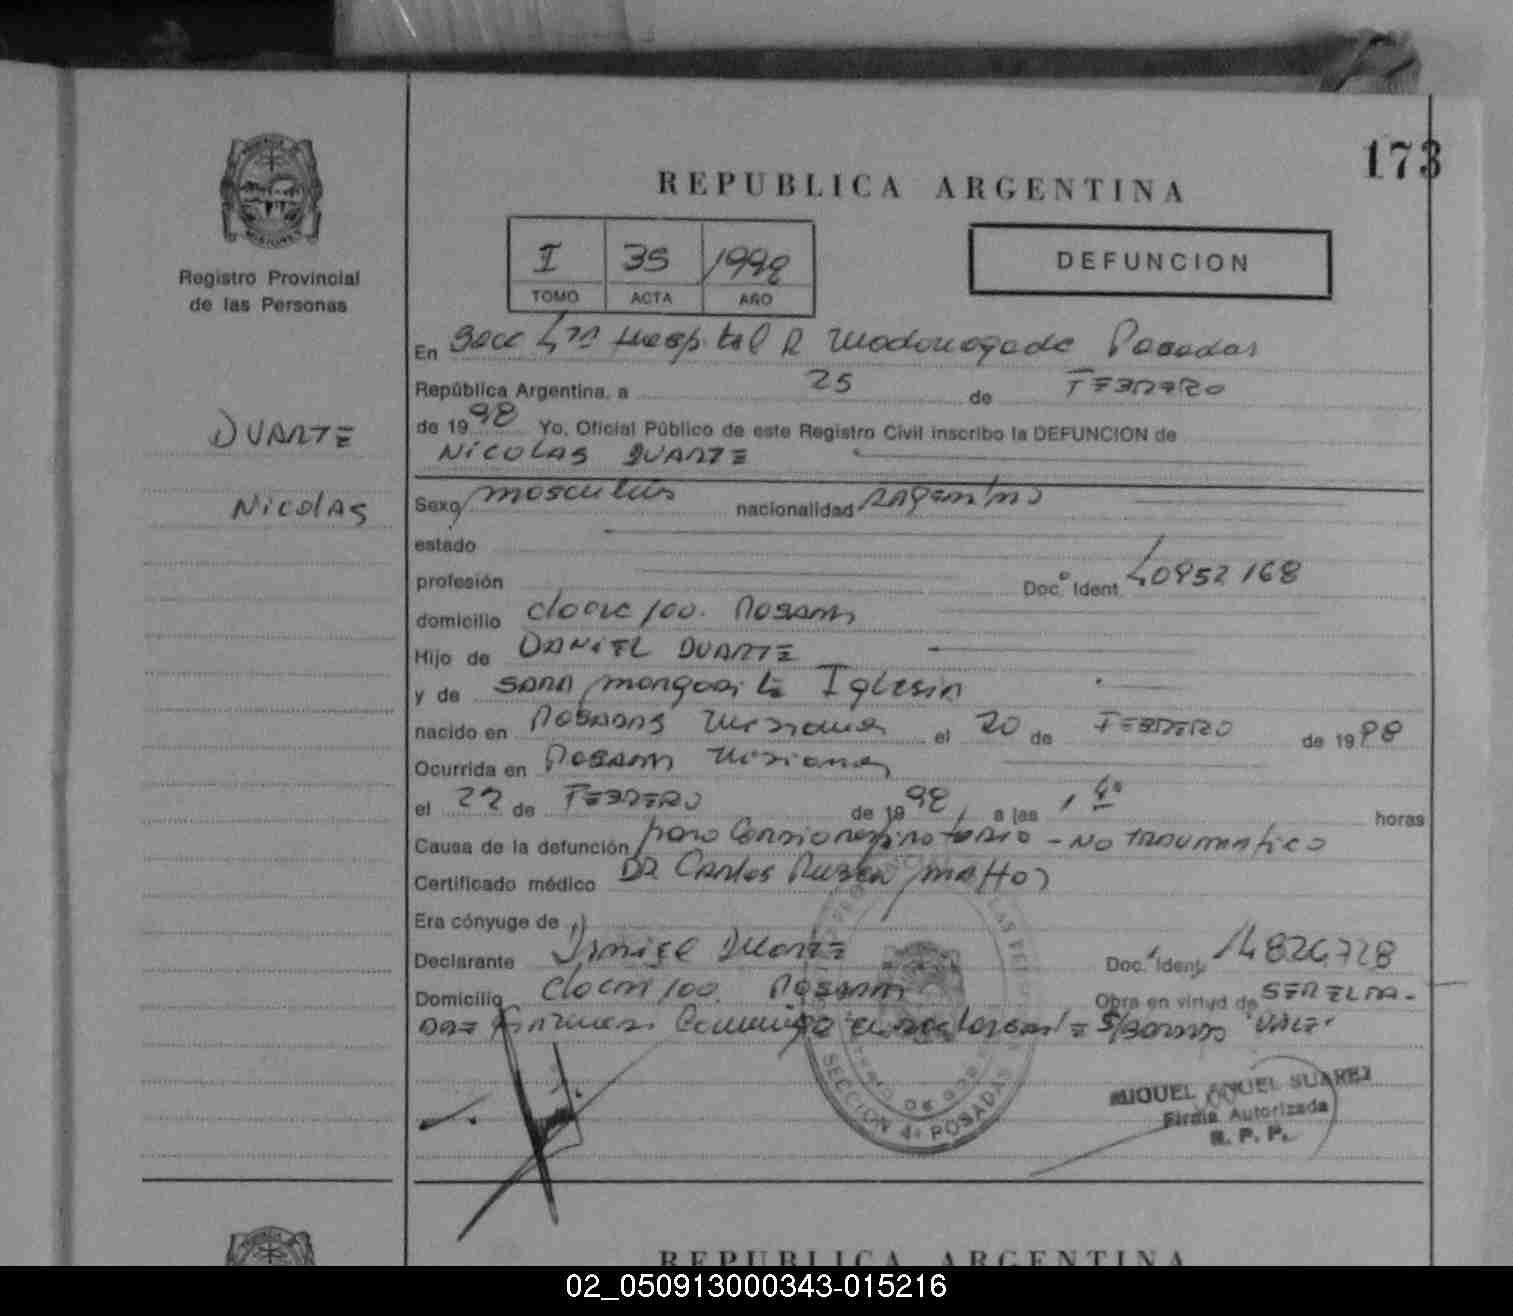 173
REPUBLICA ARGENTINA
MISIONES
Registro Provincial
de las Personas
I 35 1998
TOMO ACTA AÑO
DEFUNCION
En Secc 4ta Hospital R Madariaga de Posadas
República Argentina, a 25 de FEBRERO
de 1998 Yo, Oficial Público de este Registro Civil inscribo la DEFUNCION de
NICOLAS DUARTE
DUARTE
NICOLAS
Sexo masculino nacionalidad Argentino
estado
profesión Doc. Ident. 40952168
domicilio 100. Posadas
Hijo de DANIEL DUARTE
y de SARA margarita Iglesia
nacido en Posadas Misiones el 20 de FEBRERO de 1998
Ocurrida en Posadas Misiones
el 22 de FEBRERO de 1998, a las horas
Causa de la defunción paro Cardiorespiratorio - NO TRAUMATICO
Certificado médico DR Carlos Ruben mattos
Era cónyuge de
Declarante Daniel Duarte Doc. Ident. 14826728
Domicilio 100. Posadas Obra en virtud de SER EL PA-
DRE VALE.
SECCION 4a POSADAS
MIGUEL ANGEL SUAREZ
Firma Autorizada
R. P. P.
REPUBLICA ARGENTINA
02_050913000343-015216